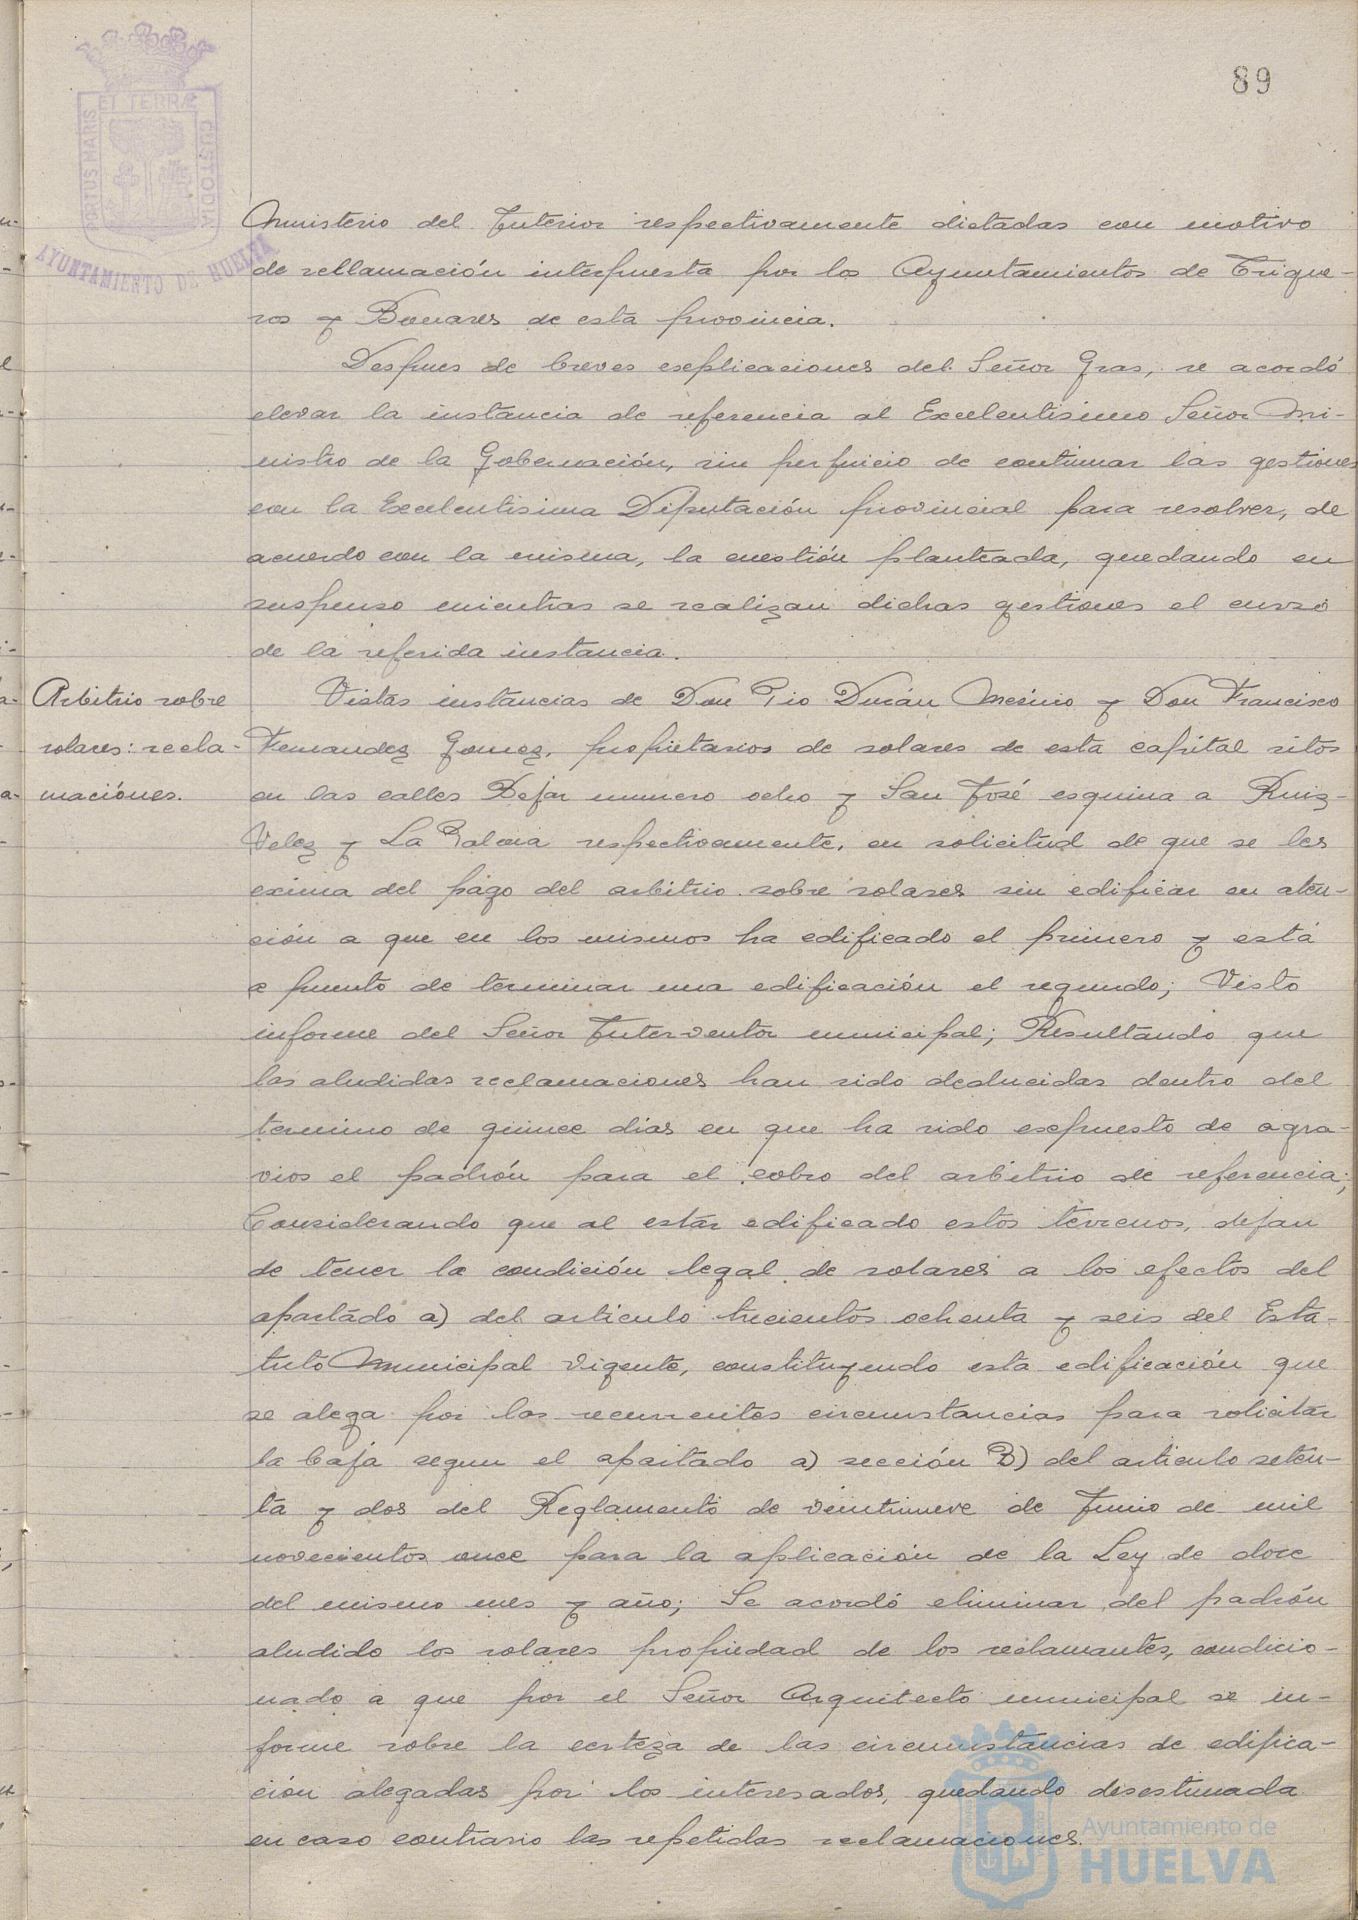 89
PORTUS MARIS ET TERRÆ CUSTODIA
AYUNTAMIENTO DE HUELVA
Ministerio del Interior respectivamente dictadas con motivo
de reclamación interpuesta por los Ayuntamientos de Trigue-
ros y Bonares de esta provincia.
Despues de breves esplicaciones del Señor Gras, se acordó
elevar la instancia de referencia al Excelentisimo Señor Mi-
nistro de la Gobernación, sin perjuicio de continuar las gestiones
con la Excelentisima Diputación provincial para resolver, de
acuerdo con la misma, la cuestión planteada, quedando en
suspenso mientras se realizan dichas gestiones el curso
de la referida instancia.
Arbitrio sobre
solares: recla-
maciónes.
Vistas instancias de Don Pio Durán y Don Francisco
Fernandez Gomez, propietarios de solares de esta capital sitos
en las calles Bejar numero ocho y San José esquina a Ruiz
Velez y La Palma respectivamente, en solicitud de que se les
exima del pago del arbitrio sobre solares sin edificar en aten-
ción a que en los mismos ha edificado el primero y está
a punto de terminar una edificación el segundo; Visto
informe del Señor Interventor municipal; Resultando que
las aludidas reclamaciones han sido deducidas dentro del
termino de quince dias en que ha sido expuesto de agra-
vios el padrón para el cobro del arbitrio de referencia;
Considerando que al estar edificado estos terrenos, dejan
de tener la condición legal de solares a los efectos del
apartado a) del artículo trecientos ochenta y seis del Esta-
tuto Municipal vigente, constituyendo esta edificación que
se alega por los recurrentes circunstancias para solicitar
la baja segun el apartado a) sección B) del articulo seten-
ta y dos del Reglamento de veintinueve de Junio de mil
novecientos once para la aplicación de la Ley de doce
del mismo mes y año; Se acordó eliminar del padrón
aludido los solares propiedad de los reclamantes, condicio-
nado a que por el Señor Arquitecto municipal se in-
forme sobre la certeza de las circunstancias de edifica-
ción alegadas por los interesados, quedando desestimada
en caso contrario las repetidas reclamaciones.
Ayuntamiento de
HUELVA